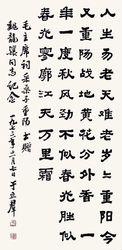 人生易老天难老岁岁重阳今
又重阳战地黄花分外香一
年一度秋风劲不似春光胜似
春光寥廓江天万里霜
毛主席词采桑子重阳书赠
龙骧同志纪念
一九七三年 月七日于立群